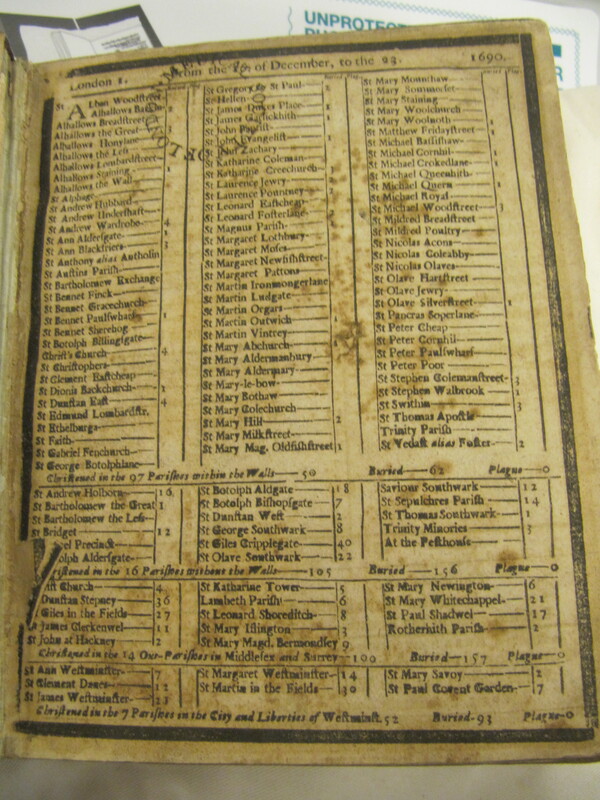 UNPROTECT
London 1.
From the of December, to the 23. 1690.
St Alban Woodstreet
Alhallows Bark
Alhallows Breadstreet
Alhallows the Great 3
Alhallows Honylane
Alhallows the Less
Alhallows Lombardstreet
Alhallows Staining 1
Alhallows the Wall
St Alphage
St Andrew Hubbard
St Andrew Undershaft
St Andrew Wardrobe 4
St Ann Aldersgate 1
St Ann Blackfriers 3
St Anthony alias Antholin
St Austins Parish
St Bartholomew Exchange
St Bennet Finck
St Bennet Gracechurch
St Bennet Paulswharf 1
St Bennet Sherehog
St Botolph Billingsgate
Christ's Church 4
St Christophers
St Clement Eastcheap
St Dionis Backchurch 1
St Dunstan East 4
St Edmund Lombardstr.
St Ethelburga
St Faith
St Gabriel Fenchurch
St George Botolphlane
St Gregory by St Paul
St Hellen
St James Dukes Place
St James Garlickhith
St John Baptist
St John Evangelist
St John Zachary
St Katharine Coleman
St Katharine Creechurch
St Laurence Jewry
St Laurence Pountney
St Leonard Eastcheap
St Leonard Fosterlane
St Magnus Parish
St Margaret Lothbury
St Margaret Moses
St Margaret Newfishstreet
St Margaret Pattons
St Martin Ironmongerlane
St Martin Ludgate
St Martin Orgars
St Martin Outwich
St Martin Vintrey
St Mary Abchurch
St Mary Aldermanbury
St Mary Aldermary
St Mary-le-bow
St Mary Bothaw
St Mary Colechurch
St Mary Hill 2
St Mary Milkstreet
St Mary Mag. Oldfishstreet 1
St Mary Mounthaw
St Mary Sommerset
St Mary Staining
St Mary Woolchurch
St Mary Woolnoth
St Matthew Fridaystreet
St Michael Bassishaw
St Michael Cornhil
St Michael Crokedlane
St Michael Queenhith
St Michael Quern
St Michael Royal
St Michael Woodstreet 3
St Mildred Breadstreet
St Mildred Poultry
St Nicolas Acons
St Nicolas Coleabby
St Nicolas Olaves
St Olave Hartstreet
St Olave Jewry
St Olave Silverstreet 1
St Pancras Soperlane
St Peter Cheap
St Peter Cornhil
St Peter Paulswharf
St Peter Poor
St Stephen Colemanstreet 3
St Stephen Walbrook 1
St Swithin 3
St Thomas Apostle
Trinity Parish
St Vedast alias Foster 2
Christened in the 97 Parishes within the Walls 50 Buried 62 Plague 0
St Andrew Holborn 16
St Bartholomew the Great 1
St Bartholomew the Less
St Bridget 12
Precinct
Aldersgate 2
St Botolph Aldgate 18
St Botolph Bishopsgate 7
St Dunstan West 2
St George Southwark 8
St Giles Cripplegate 40
St Olave Southwark 22
Saviour Southwark 12
St Sepulchres Parish 14
St Thomas Southwark 1
Trinity Minories 3
At the Pesthouse
in the 16 Parishes without the Walls 105 Buried 156 Plague 0
Church 4
Dunstan Stepney 36
Giles in the Fields 27
St James Clerkenwel 11
St John at Hackney 2
St Katharine Tower 5
Lambeth Parish 6
St Leonard Shoreditch 8
St Mary Islington 3
St Mary Magd. Bermondsey 9
St Mary Newington 6
St Mary Whitechappel 21
St Paul Shadwel 17
Rotherhith Parish 2
Christened in the 14 Out-Parishes in Middlesex and Surrey 100 Buried 157 Plague 0
St Ann Westminster 7
St Clement Danes 12
St James Westminster 23
St Margaret Westminster 14
St Martin in the Fields 30
St Mary Savoy 2
St Paul Covent Garden 7
Christened in the 7 Parishes in the City and Liberties of Westminst. 52 Buried 93 Plague 0